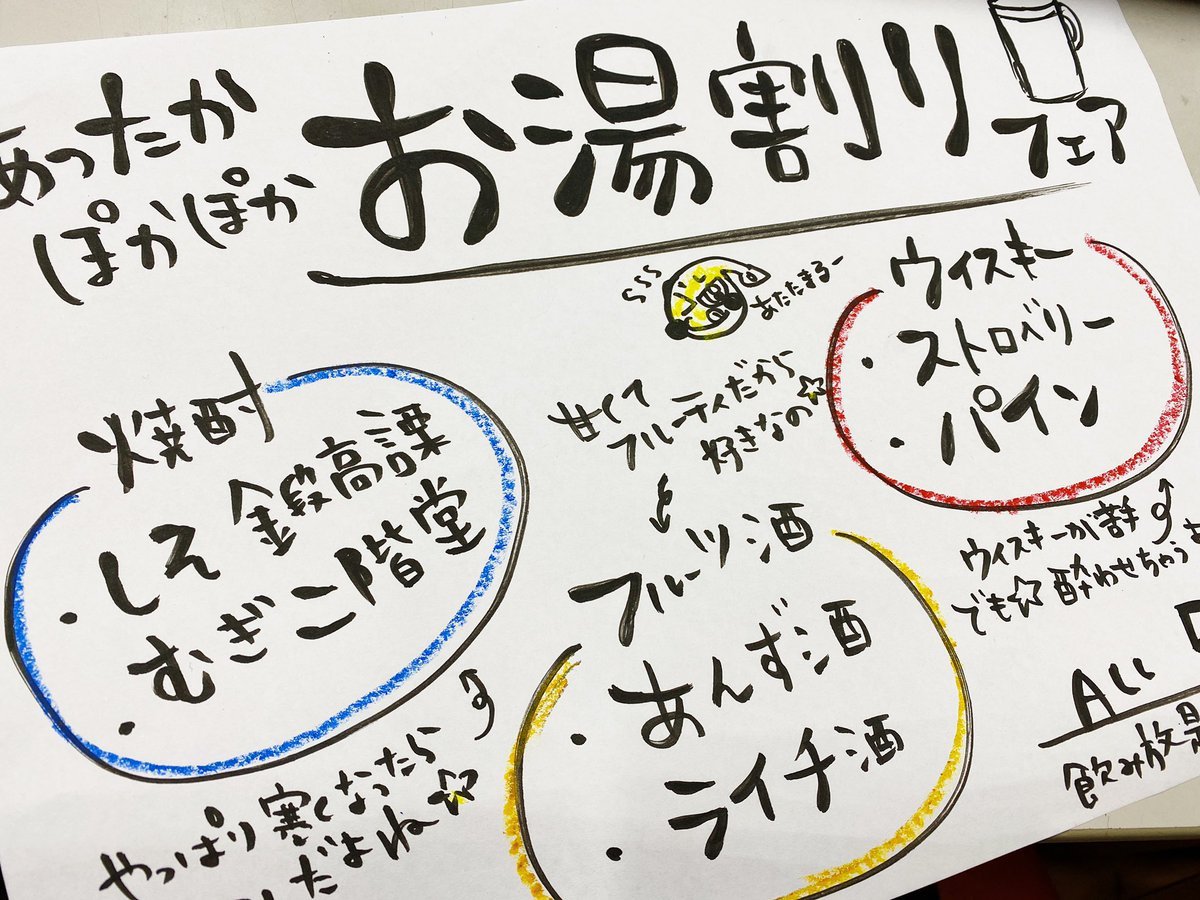 あったか
ぽかぽか
お湯割り
フェア
あたたまるー
焼酎
・しそ 鍛高譚
・むぎ 二階堂
やっぱり寒くなったら
だよね☆
甘くて
フルーティだから
好きなの☆
フルーツ酒
・あんず酒
・ライチ酒
ウィスキー
・ストロベリー
・パイン
ウィスキーが苦手
でも☆酔わせちゃうよ
ALL
飲み放題